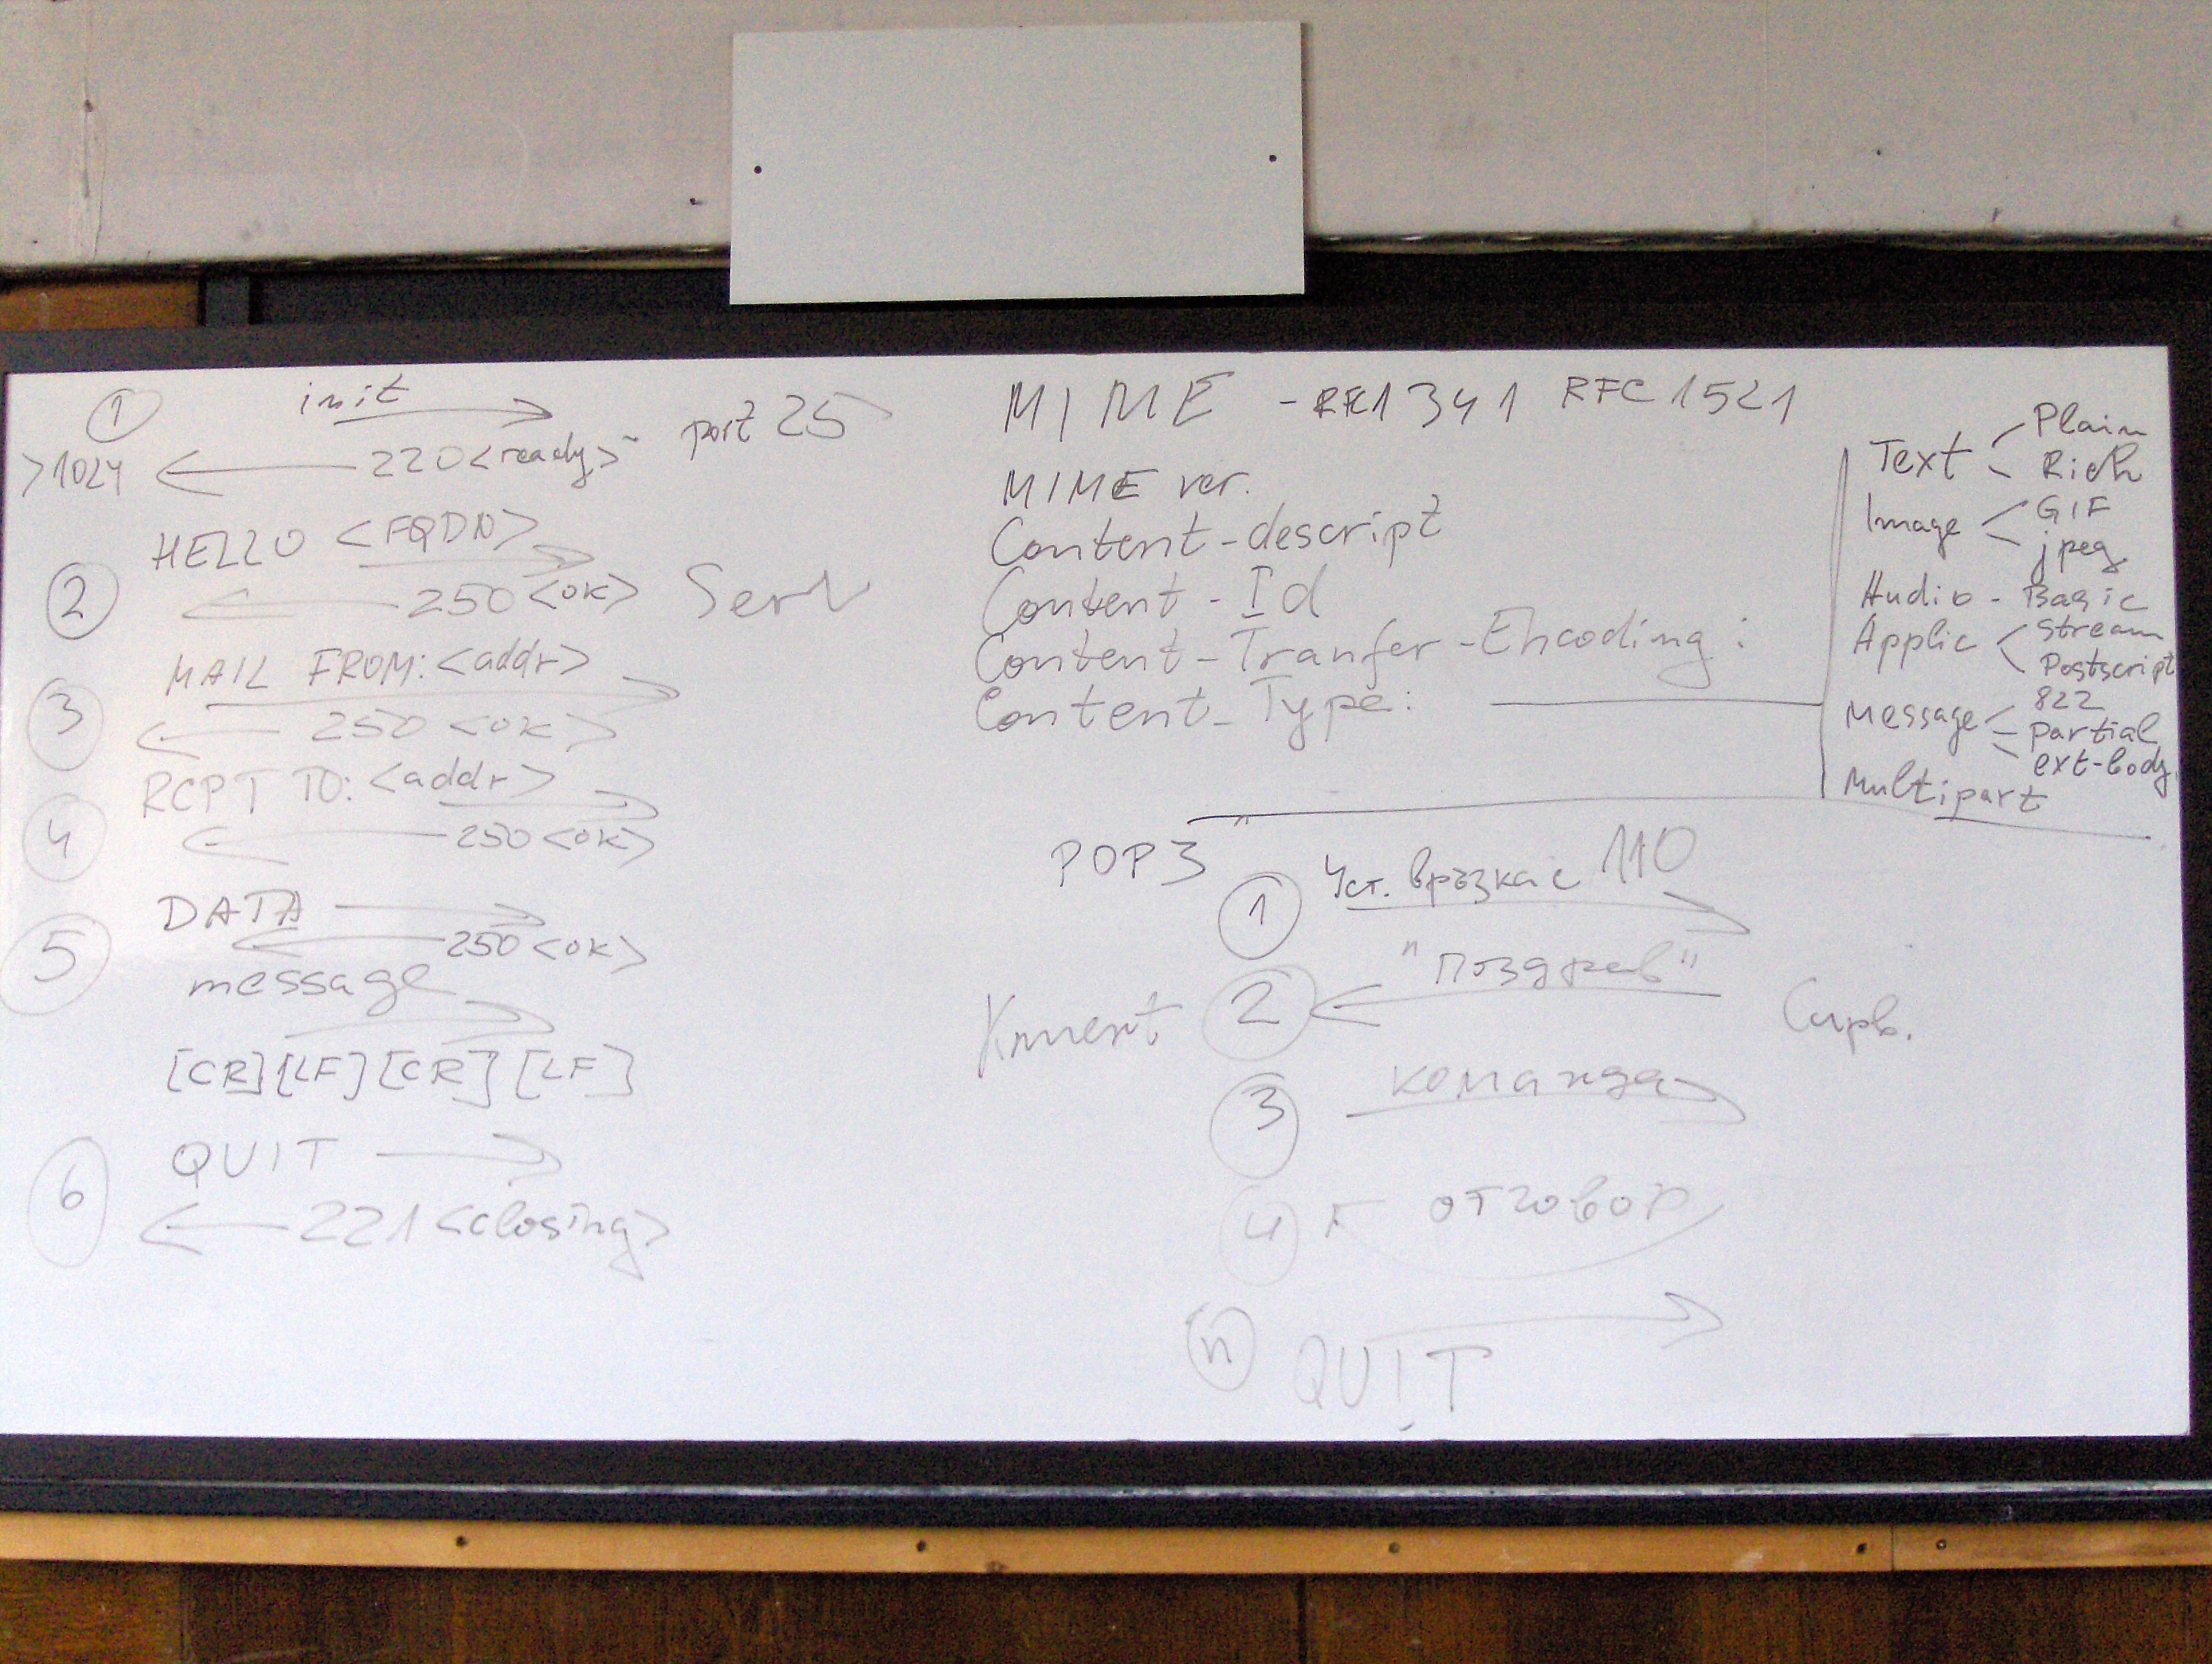 ① init → port 25
>1024 ← 220 <ready>
HELLO <FQDN> →
② ← 250 <ok> Serv
MAIL FROM: <addr> →
③ ← 250 <ok>
RCPT TO: <addr> →
④ ← 250 <ok>
DATA →
⑤ ← 250 <ok>
message →
[CR][LF][CR][LF]
QUIT →
⑥ ← 221 <closing>
MIME - RFC1341 RFC 1521
MIME ver.
Content-descript
Content-Id
Content-Tranfer-Encoding:
Content-Type:
Text Plain
Rich
Image GIF
jpeg
Audio - Basic
Applic Stream
Postscript
Message 822
Partial
ext-body
Multipart
POP3
① Уст. връзка с 110 →
② ← "Поздрав"
Клиент Сърв.
③ команда →
④ ← отговор
ⓝ QUIT →